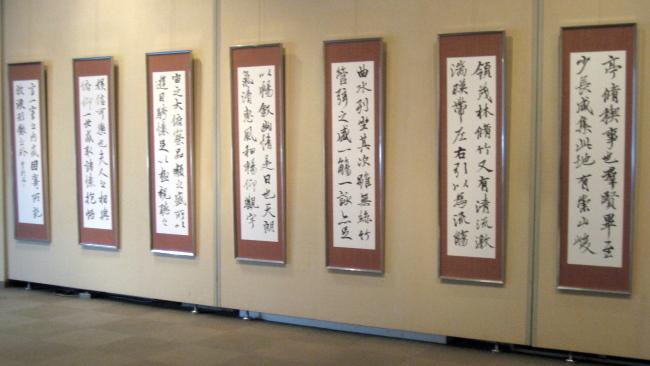 亭脩禊事也羣賢畢至
少長咸集此地有崇山峻
領茂林脩竹又有清流激
湍暎帶左右引以為流觴
曲水列坐其次雖無絲竹
管弦之盛一觴一詠亦足
以暢敘幽情是日也天朗
氣清惠風和暢仰觀宇
宙之大俯察品類之盛所以
遊目騁懷足以極視聽之
娛信可樂也夫人之相與
俯仰一世或取諸懷抱悟
言一室之內或因寄所託
放浪形骸之外